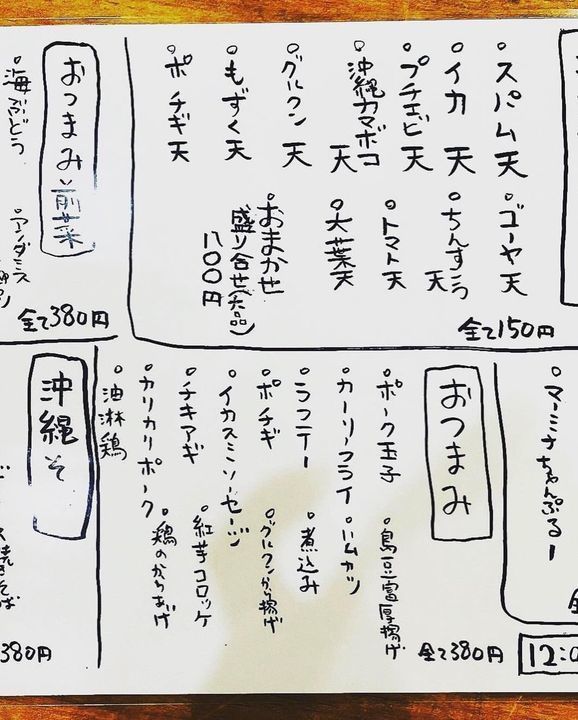 スパム天
イカ天
プチエビ天
沖縄カマボコ天
グルクン天
もずく天
ポチギ天
ゴーヤ天
ちんすこう天
トマト天
大葉天
おまかせ
盛り合せ(六品)
八〇〇円
全て150円
おつまみ前菜
海ぶどう
全て380円
マーミナちゃんぷるー
12:0
おつまみ
ポーク玉子
カーリーフライ
ラフテー
ポチギ
イカスミソーセージ
チキアギ
カリカリポーク
油淋鶏
島豆富厚揚げ
ハムカツ
煮込み
グルクンから揚げ
紅芋コロッケ
鶏のからあげ
全て380円
沖縄そ
焼きそば
380円